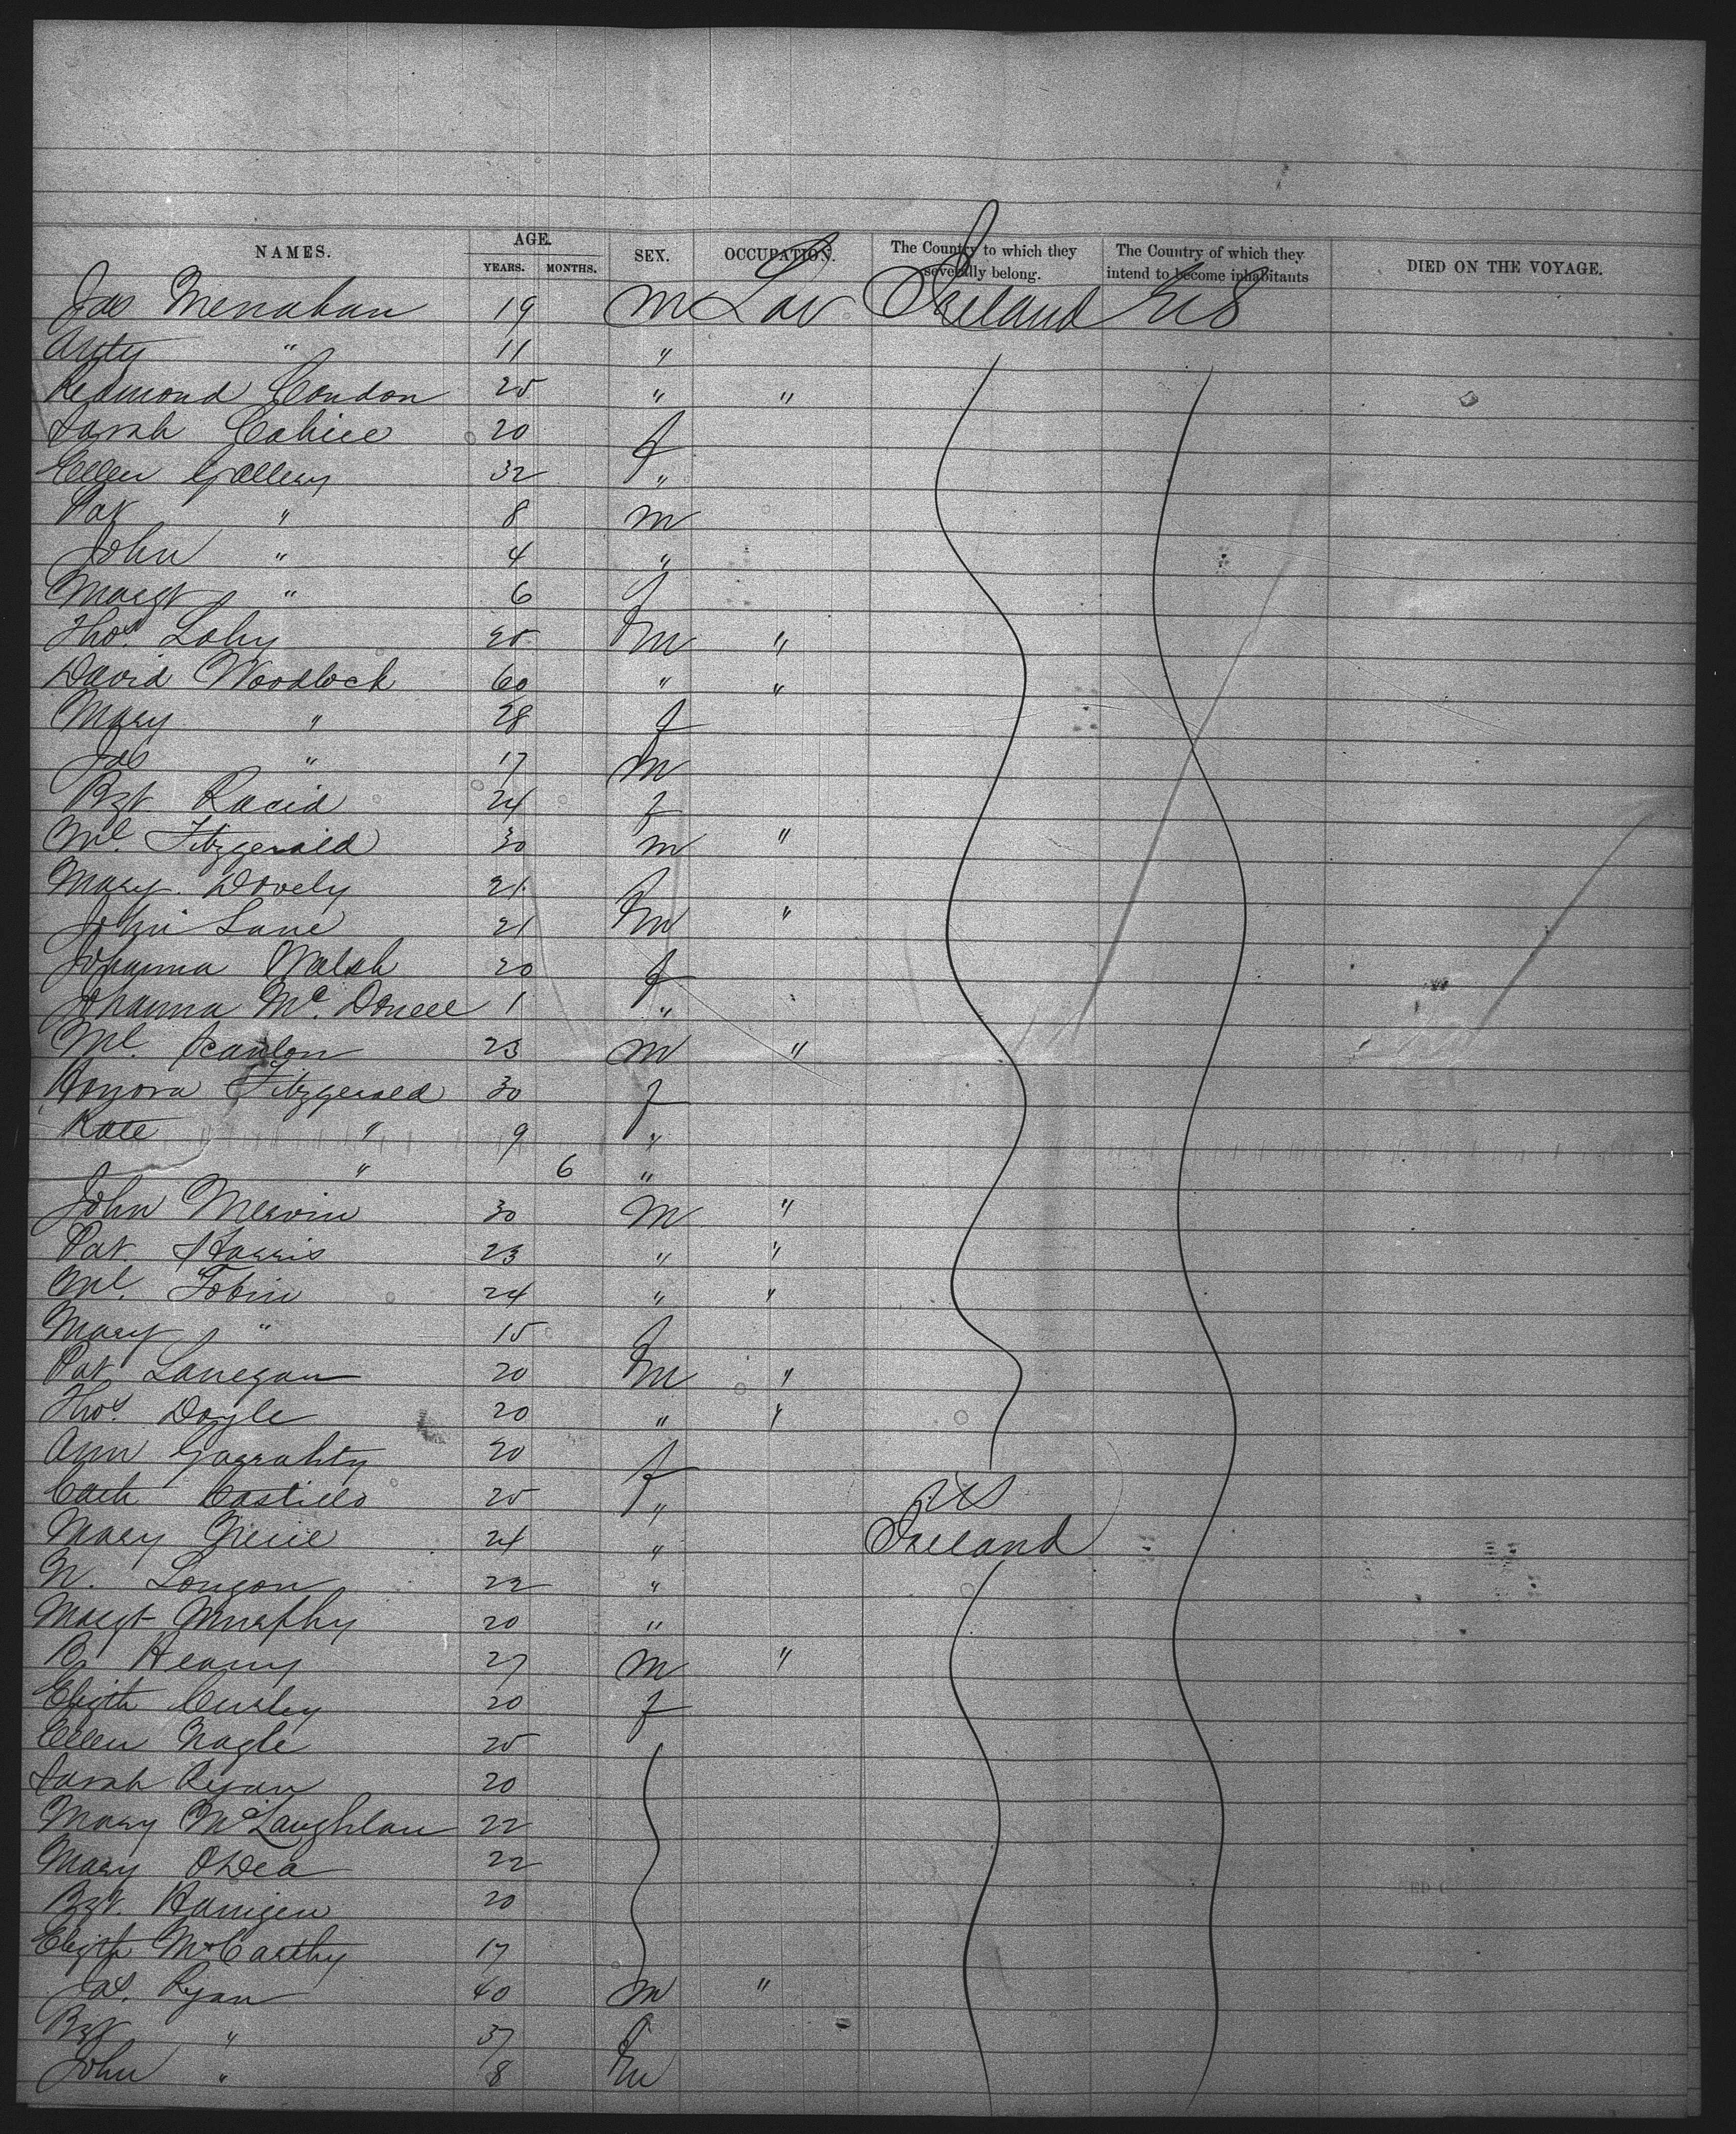 NAMES. AGE. YEARS. MONTHS. SEX. OCCUPATION. The Country to which they severally belong. The Country of which they intend to become inhabitants DIED ON THE VOYAGE.
Jas Menahan 19 m Lab Ireland US
Anty " 11 "
Redmond Condon 25 " "
Sarah Cahill 20 f
Ellen Gallery 32 "
Pat " 8 m
John " 4 "
Margt " 6 f
Thos. Lahy 25 m "
David Woodlock 60 " "
Mary " 28 f
Jas " 17 m
Bgt Racid 24 f
Ml. Fitzgerald 30 m "
Mary Dovely 21 f
John Lane 21 m "
Johanna Walsh 20 f
Johanna Mc. Donell 1 "
Ml. Scanlon 23 m "
Honora Fitzgerald 30 f
Kate " 9 "
" 6 "
John Mervin 30 m "
Pat. Harris 23 " "
Ml. Tobin 24 " "
Mary " 15 f
Pat Lanegan 20 m "
Thos. Doyle 20 " "
Ann Garrahty 20 f
Cath Costillo 25 " US
Mary Neill 24 " Ireland
N. Longon 22 "
Margt Murphy 20 "
B. Heany 27 m "
Elizth Cursley 20 f
Ellen Nagle 25
Sarah Ryan 20
Mary McLaughlan 22
Mary ODea 22
Bgt. Hanigen 20
Elizth McCarthy 17
Jas. Ryan 40 m "
Bgt " 37 f
John " 8 m